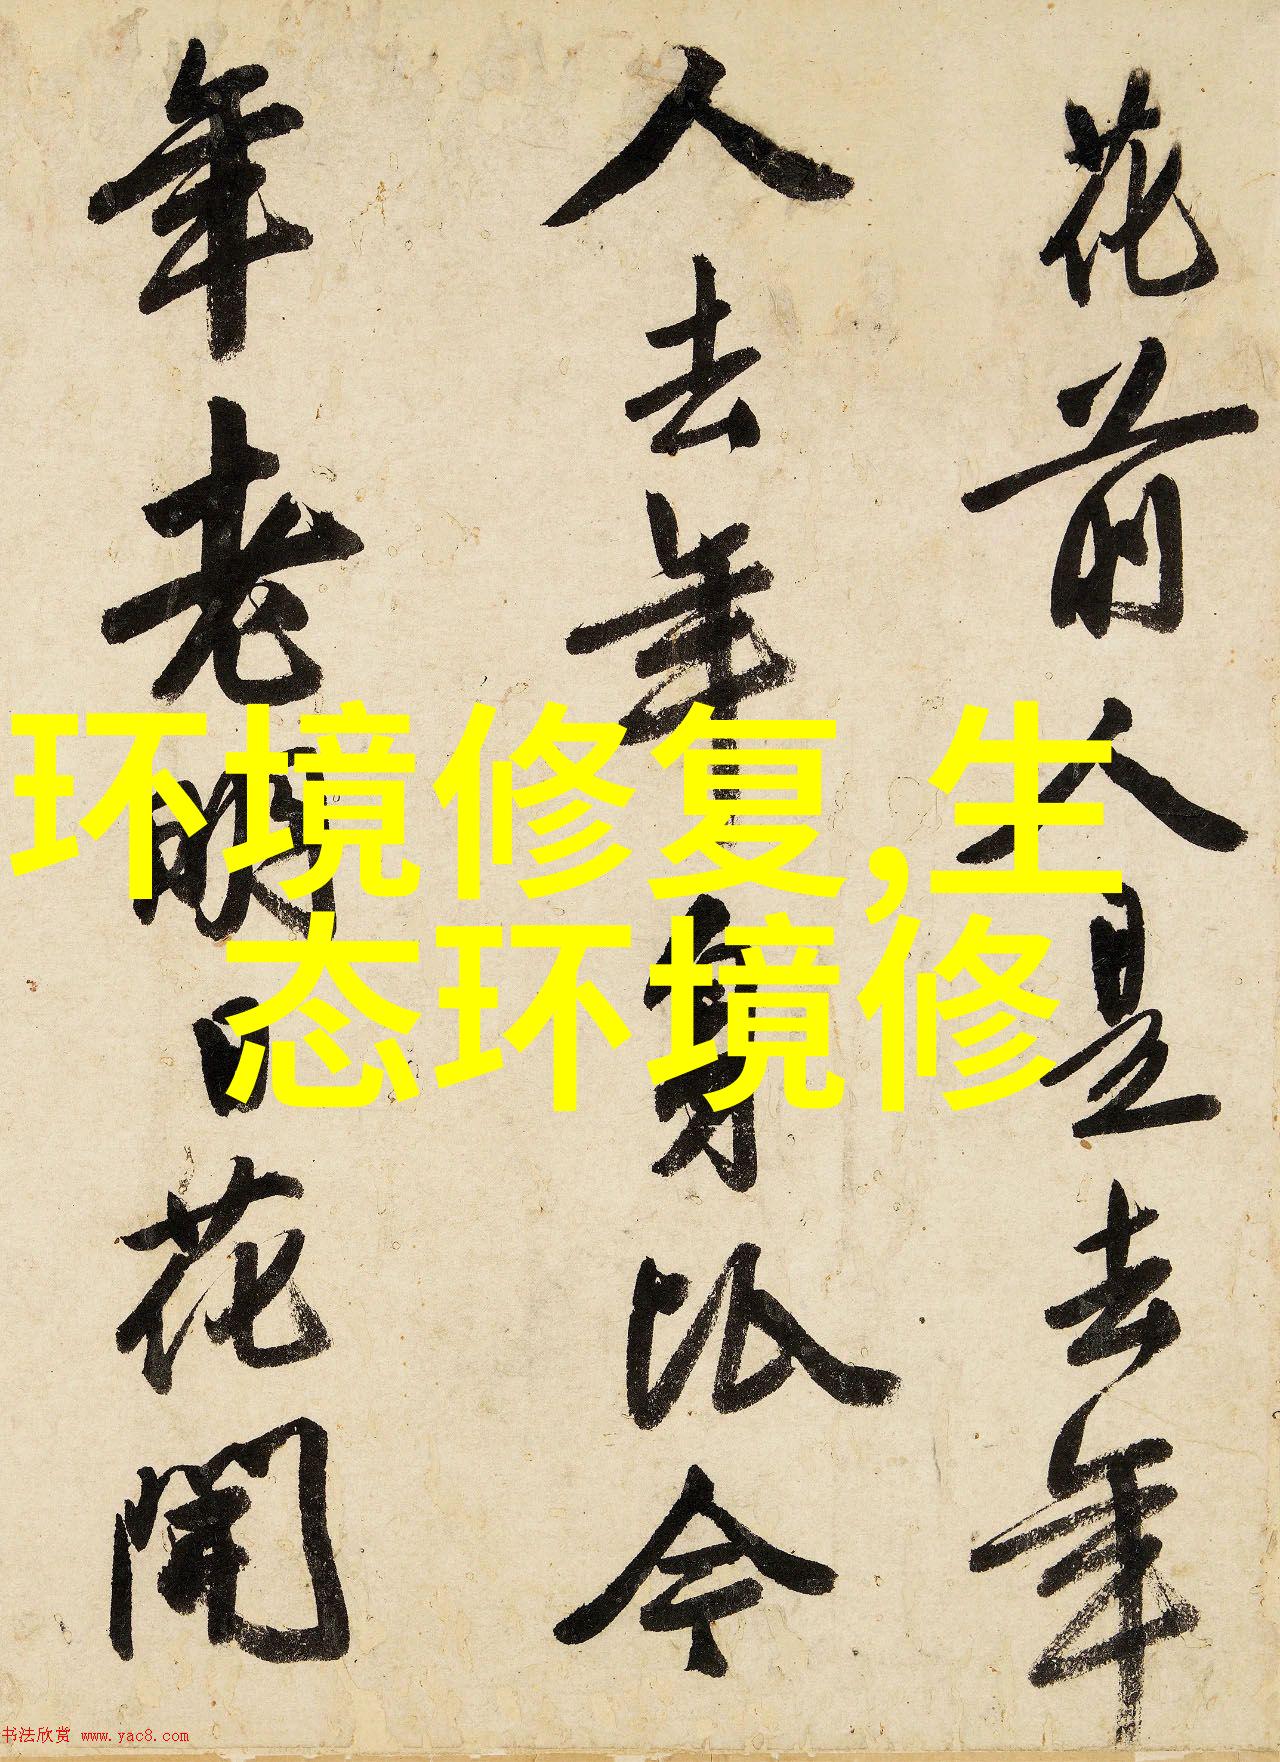 花前人是去年
人去年身比今
年老明日花開
环境修复,生
态环境修
书法欣赏 www.yac8.com